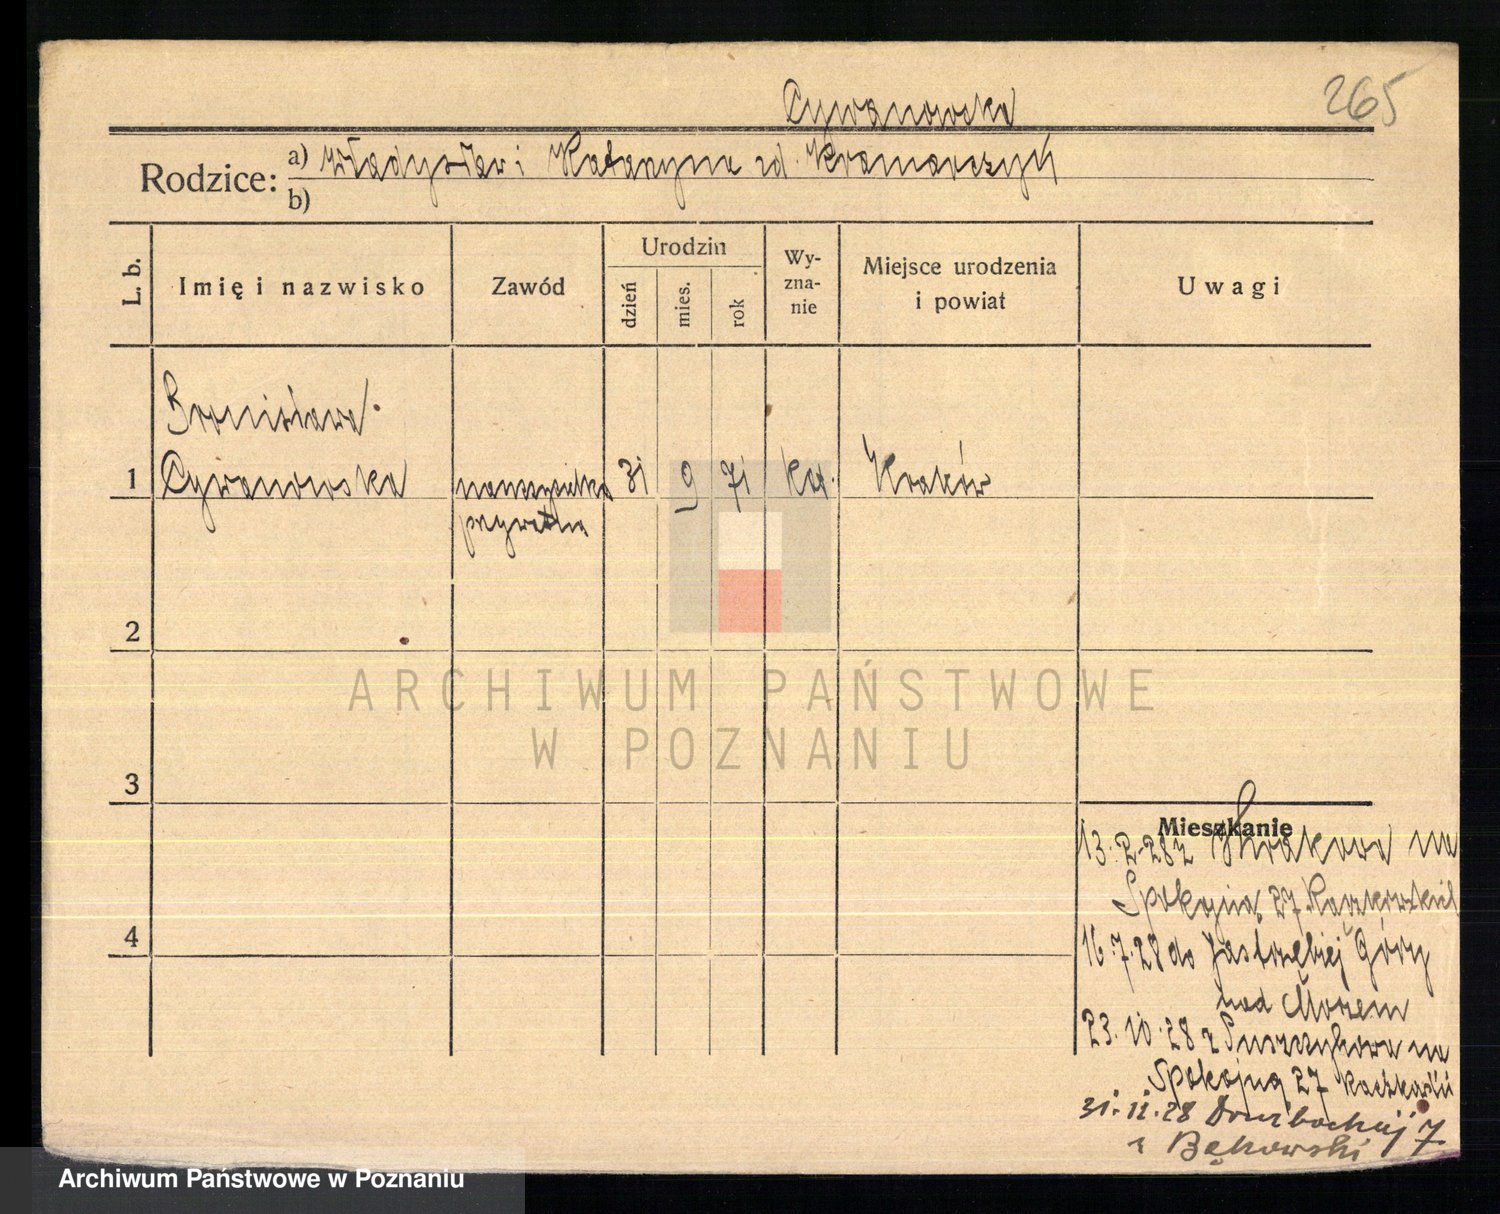 265
Cywanowska
Rodzice: a) Władysław i Katarzyna zd. Kramarczyń
b)
L. b.
Imię i nazwisko
Zawód
Urodzin
dzień
mies.
rok
Wy-
zna-
nie
Miejsce urodzenia
i powiat
Uwagi
Bronisława
1 Cywanowska nauczycielka 31 9 71 kat. Kraków
prywatna
2
3
4
ARCHIWUM PAŃSTWOWE
W POZNANIU
Mieszkanie
13.2.28 z Krakowa na
Spokojną 27
16.7.28 do Jastrzębiej Góry
nad Morzem
23.10.28 z Puszczykowa na
Spokojną 27
31.12.28 7
Bękowski
Archiwum Państwowe w Poznaniu